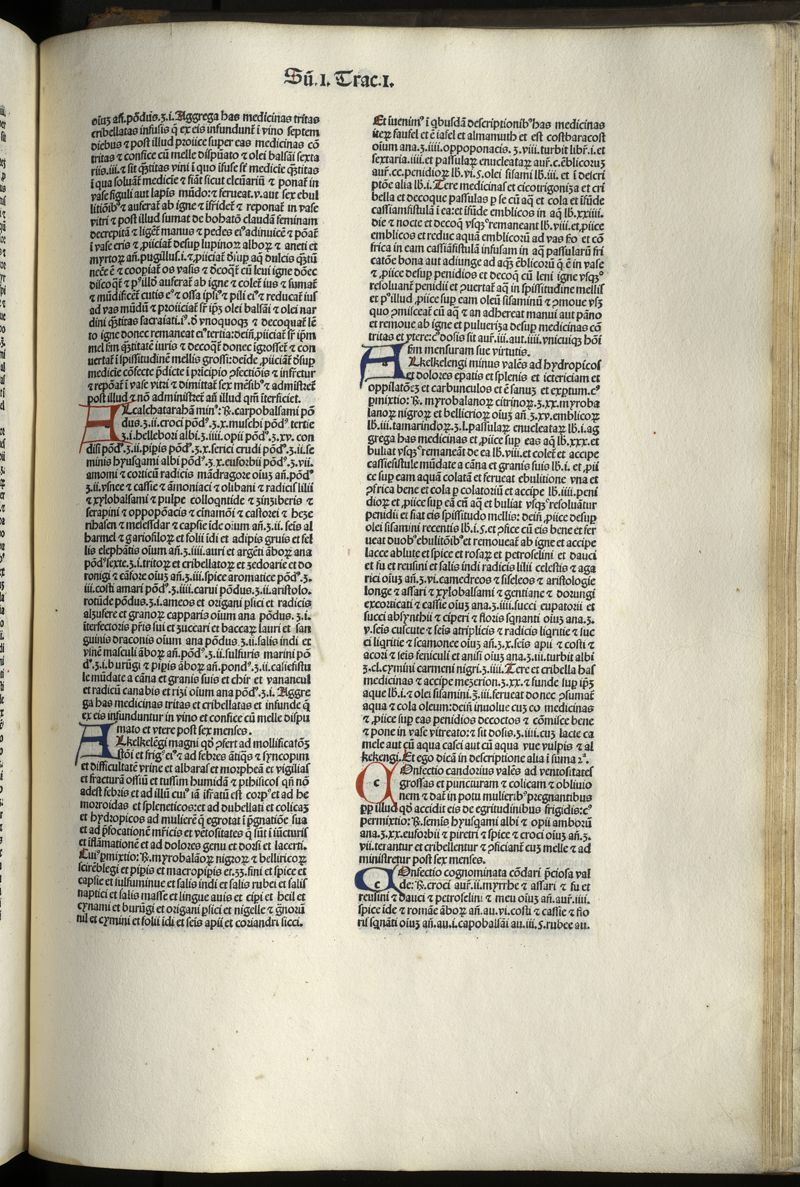 Sū.I. Trac.I.
oiuȝ añ.põdus.ʒ.i. Aggrega has medicinas tritas
cribellatas infusis q̄ ex eis infundunt̄ ī vino septem
diebus ⁊ post illud proiice super eas medicinas cō
tritas ⁊ confice cū melle dispūato ⁊ olei balsāi sexta
riis.iii.⁊ sit q̄titas vini ī quo īfuse sr̄ medicīe q̄titas
ī qua soluāt̄ medicīe ⁊ fiāt sicut elcūariū ⁊ ponat̄ in
vase figuli aut lapis mūdo:⁊ ferueat.v.aut sex ebul
litiōib⁹ ⁊ auferat̄ ab igne ⁊ īfridet̄ ⁊ reponat̄ in vase
vitri ⁊ post illud sumat de bobatō claudā feminam
decrepitā ⁊ liget̄ manus ⁊ pedes ei⁹ adinuicē ⁊ pōat̄
ī vase eris ⁊ ꝓiiciat̄ desup lupinoꝝ alboꝝ ⁊ aneti et
myrtoꝝ añ.pugillus.i.⁊ ꝓiiciat̄ dsup aq̄ dulcis q̄tū
necē ē ⁊ coopiat̄ os vasis ⁊ dcoq̄t̄ cū leui igne dōec
discoq̄t̄ ⁊ pꝰ illō auferat̄ ab igne ⁊ colet̄ ius ⁊ sumat̄
⁊ mūdificet̄ cutis eꝰ ⁊ ossa ipsiꝰ ⁊ pili eiꝰ ⁊ reducat̄ ius
ad vas mūdū ⁊ proiiciat̄ sr̄ ip̄ȝ olei balsāi ⁊ olei nar
dini q̄titas sacraiati.i.⁊ vnoquoqȝ ⁊ decoquat̄ lē
to igne donec remaneat eiꝰ tertia:deiñ ꝓiiciat̄ sr̄ ipm
mel scḿ q̄titatē iuris ⁊ decoq̄t̄ donec īgrosset̄ ⁊ con
uertat̄ ī spissitudinē mellis grossi:deide ꝓiiciat̄ dsup
medicie cōfecte p̄dicte ī pricipio ꝓfectiōis ⁊ infretur
⁊ repōat̄ ī vase vitri ⁊ dimittat̄ sex mēsibꝰ ⁊ admīstret̄
post illud ⁊ nō administret̄ añ illud qm̄ īterficiet.
Alcalebatarahā minꝰ:℞.carpobalsami pō
dus.ʒ.ii.croci pōdꝰ.ʒ.x.muschi pōdꝰ tertie
ʒ.i.hellebori albi.ʒ.iiii.opii pōdꝰ.ʒ.xv.con
disi pōdꝰ.ʒ.ii.pipis pōdꝰ.ʒ.x.serici crudi pōdꝰ.ʒ.ii.se
minis hyusqami albi pōdꝰ.ʒ.x.euforbii pōdꝰ.ʒ.vii.
amomi ⁊ corticū radicis mādragore oiuȝ añ.pōdꝰ
ʒ.ii.vsnee ⁊ cassie ⁊ āmoniaci ⁊ olibani ⁊ radicis lilii
⁊ xylobalsami ⁊ pulpe colloqntide ⁊ ʒinʒiberis ⁊
serapini ⁊ oppopōacis ⁊ cinamōi ⁊ castorei ⁊ beʒe
ribasen ⁊ melessdar ⁊ capsie ide oium añ.ʒ.ii.seīs al
barmel ⁊ gariofiloꝝ et folii idi et adipis gruis et fel
lis elephātis oium añ.ʒ.iiii.auri et argēti āboꝝ ana
pōdꝰ sexte.ʒ.i.tritoꝝ et cribellatoꝝ et ʒedoarie et do
ronigi ⁊ cāfore oiuȝ añ.ʒ.iii.spice aromatice pōdꝰ.ʒ.
iii.costi amari pōdꝰ.ʒ.iiii.carui pōdus.ʒ.ii.aristolo.
rotūde pōdus.ʒ.i.ameos et origani p̄sici et radicis
alʒusere et granoꝝ capparis oium ana pōdus.ʒ.i.
itersectoris p̄ris sui et ʒuccari et baccaꝝ lauri et san
guinis draconis oium ana pōdus.ʒ.ii.salis indi et
vinē masculi āboꝝ añ.pōdꝰ.ʒ.ii.sulfuris marini pō
dꝰ.ʒ.i.burūgi ⁊ pipis āboꝝ añ.pondꝰ.ʒ.ii.casiefistu
le mūdate a cāna et granis suis et chir et vanancul
et radicū canabis et riʒi oium ana pōdꝰ.ʒ.i. Aggre
ga has medicinas tritas et cribellatas et infunde q̄
ex eis infunduntur in vino et confice cū melle dispu
mato et vtere post sex menses.
Alkelkēgi magni qđ ꝯfert ad mollificatōȝ
stōi et frigꝰ eiꝰ ⁊ ad febres ātiq̄s ⁊ syncopim
et difficultatē vrine et albaras et morpheā et vigilias
et fracturā ossiū et tussim humidā ⁊ ptihsicos qñ nō
adest febris et ad illū cuiꝰ iā īfratū est corpꝰ et ad he
moroidas et spleneticos:et ad dubellati et colicaȝ
et hydropicos ad mulierē q̄ egrotat ī p̄gnatiōe sua
et ad p̄focationē mr̄icis et vētositates q̄ sūt ī iūcturis
et īflāmatione et ad dolores genu et dorsi et lacerti.
Cuiꝰ pmixtio:℞.myrobalāoꝝ nigroꝝ ⁊ belliricoꝝ
seirēblegi et pipis et macropipis et.ʒʒ.fini et spice et
capsie et iusfuminue et salis indi et salis rubei et salis
naptici et salis masse et lingue auis et cipi et beil et
cynami et burūgi et origani p̄sici et nigelle ⁊ ḡnorū
nil et cymini et folii idi et seīs apii et coriandri sicci.
Et īuenimꝰ ī qbusdā descriptionibꝰ has medicinas
iteꝝ fausel et ē iasel et almamuth et est costbaracost
oium ana.ʒ.iiii.oppoponacis.ʒ.viii.turbit libr.i.et
sextaria.iiii.et passulaꝝ enucleataꝝ auř.c.ēblicoruȝ
auř.cc.penidioꝝ lb.vi.s.olei sisami lb.iii.et ī descri
ptōe alia lb.i. Tere medicinas et cicotrigoniʒa et cri
bella et decoque passulas p se cū aq̄ et cola et īfūde
cassiamfistulā ī ea:et īfūde emblicos in aq̄ lb.xxiiii.
die ⁊ nocte et decoq̄ vsq̄ꝫ remaneant lb.viii.et ꝓiice
emblicos et reduc aquā emblicorū ad vas ⁊ cō
frica in eam cassiāfistulā infusam in aq̄ passularū fri
catōe bona aut adiunge ad aq̄ȝ ēblicorū q̄ ē in vase
⁊ ꝓiice desup penidios et decoq̄ cū leni igne vsqꝫ
resoluant̄ penidii et ꝯuertat̄ aq̄ in spissitudine mellis
et pꝰ illud ꝓiice sup eam oleū sisaminū ⁊ ꝓmoue vsȝ
quo ꝑmisceat̄ cū aq̄ ⁊ an adhereat manui aut pāno
et remoue ab igne et pulueriʒa desup medicinas cō
tritas et vtere:eꝰ dosis sit auř.iii.aut.iiii.vnicuiqȝ hōi
scḿ mensuram sue virtutis.
Alkelkengi minus valēs ad hydropicos
et dolores epatis et splenis et ictericiam et
oppilatōeȝ et carbunculos et ē sanuȝ et exptum.eꝰ
pmixtio:℞.myrobalanoꝝ citrinoꝝ.ʒ.xx.myroba
lanoꝝ nigroꝝ et bellicrioꝝ oiuȝ añ.ʒ.xv.emblicoꝝ
lb.iii.tamarindoꝝ.ʒ.l.passulaꝝ enucleataꝝ lb.i.ag
grega has medicinas et ꝓiice sup eas aq̄ lb.xxx.et
buliat vsqꝫ remaneāt de ea lb.viii.et colet̄ et accipe
cassiefistule mūdate a cāna et granis suis lb.i.et ꝓii
ce sup eam aquā colatā et ferueat ebulitione vna et
ꝯfrica bene et cola p colatoriū et accipe lb.iiii.peni
dioꝝ et ꝓiice sup eā cū aq̄ et buliat vsqꝫ resoluātur
penidii et fiat eis spissitudo mellis:deiñ ꝓiice desup
olei sisamini recentis lb.i.s.et ꝯfice cū eis bene et fer
ueat duobꝰ ebulitōibꝰ et remoueat̄ ab igne et accipe
lacce ablute et spice et rosaꝝ et petroselini et dauci
et fu et reusini et salis indi radicis lilii celestis ⁊ aga
rici oiuȝ añ.ʒ.vi.camedreos ⁊ siseleos ⁊ aristologie
longe ⁊ assari ⁊ xylobalsami ⁊ gentiane ⁊ dorungi
excorticati ⁊ cassie oiuȝ ana.ʒ.iiii.succi eupatorii et
succi absynthii ⁊ ciperi ⁊ floris sqnanti oiuȝ ana.ʒ.
v.seīs cuscute ⁊ seīs atriplicis ⁊ radicis liqritie ⁊ suc
ci liqritie ⁊ scamonee oiuȝ añ.ʒ.x.seīs apii ⁊ costi ⁊
acori ⁊ seīs feniculi et anisi oiuȝ ana.ʒ.iii.turbit albi
ʒ.cl.cymini carmeni nigri.ʒ.iiii. Tere et cribella has
medicinas et accipe meʒerion.ʒ.xx.⁊ funde sup ip̄ȝ
aque lb.i.⁊ olei sisamini.ʒ.iii.ferueat donec ꝯsumat̄
aqua ⁊ cola oleum:deiñ inuolue cuȝ eo medicinas
⁊ ꝓiice sup eas penidios decoctos ⁊ cōmisce bene
⁊ pone in vase vitreato:⁊ sit dosis.ʒ.iiii.cuȝ lacte ca
mele aut cū aqua casei aut cū aqua vue vulpis ⁊ al
kekengi. Et ego dicā in descriptione alia ī suma ꝛͣ.
Confectio candorius valēs ad ventositates
grossas et puncturam ⁊ colicam ⁊ obliuio
nem ⁊ daī in potu mulieribꝰ pregnantibus
pp illud qđ accidit eis de egritudinibus frigidis:eꝰ
permixtio:℞.semīs hyusqami albi ⁊ opii amborū
ana.ʒ.xx.euforbii ⁊ piretri ⁊ spice ⁊ croci oiuȝ añ.ʒ.
vii.terantur et cribellentur ⁊ ꝯficiant̄ cuȝ melle ⁊ ad
ministretur post sex menses.
Confectio cognominata cōdari p̄ciosa val
de:℞.croci auř.ii.myrrhe ⁊ assari ⁊ fu et
reusini ⁊ dauci ⁊ petroselini ⁊ meu oiuȝ añ.auř.iiii.
spice īde ⁊ romāe āboꝝ añ.au.vi.costi ⁊ cassie ⁊ flo
ris sqnāti oiuȝ añ.au.i.capobalsāi au.iii.s.rubee au.